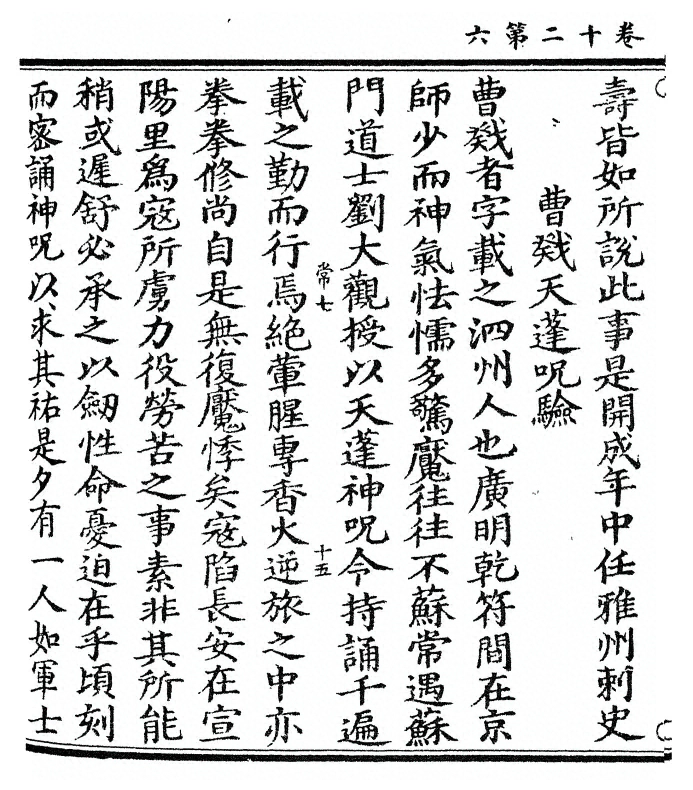 卷十二第六
壽皆如所說此事是開成年中任雅州刺史
曹戣天蓬呪驗
曹戣者字載之泗州人也廣明乾符間在京
師少而神氣怯懦多驚魘往往不蘇常遇蘇
門道士劉大觀授以天蓬神呪令持誦千遍
常七
十五
載之勤而行焉絶葷腥專香火逆旅之中亦
拳拳修尚自是無復魘悸矣寇陷長安在宣
陽里爲寇所虜力役勞苦之事素非其所能
稍或遲舒必承之以劒性命憂迫在乎頃刻
而密誦神呪以求其祐是夕有一人如軍士